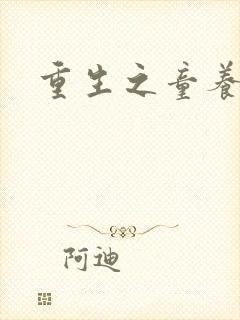 重生之童養
阿迪